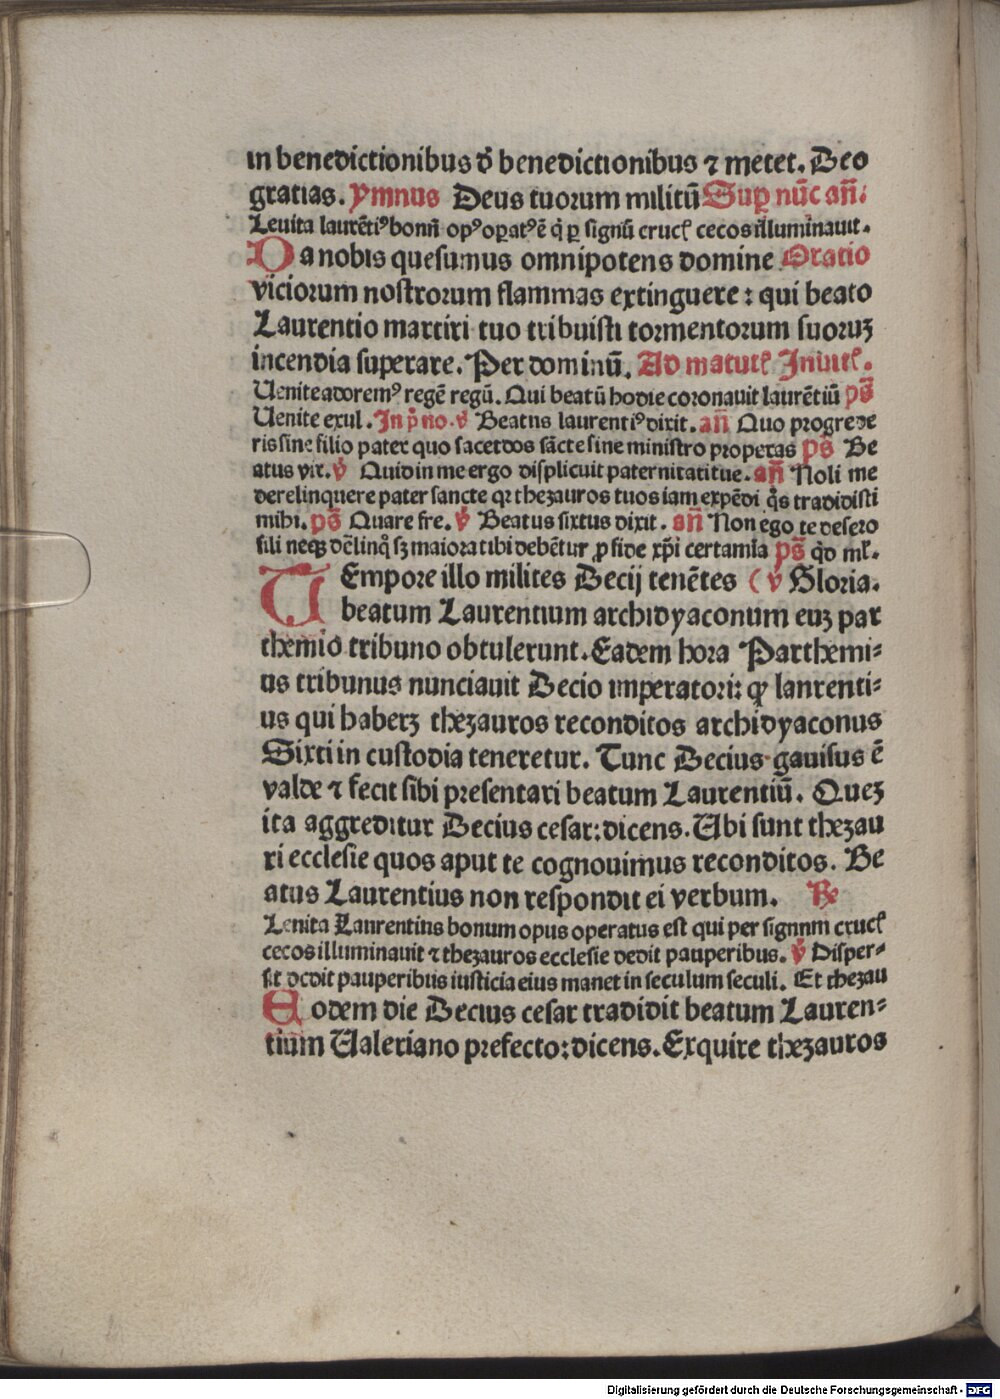 in benedictionibus đ benedictionibus ⁊ metet. Deo
gratias. ymnus Deus tuorum militū Suꝑ nūc añ.
Leuita laurēti⁹ bonū op⁹ oꝑat⁹ ē q̇ ꝑ signū cruc̄ cecos illuminauit.
Da nobis quesumus omnipotens domine Oratio
viciorum nostrorum flammas extinguere: qui beato
Laurentio martiri tuo tribuisti tormentorum suoruꝫ
incendia superare. Per dominū. Ad matut̄ Inuit̄.
Uenite adorem⁹ regē regū. Qui beatū hodie coronauit laurētiū ps̄
Uenite exul. In p̄ no. v̄ Beatns laurenti⁹ dixit. añ Quo progrede
ris sine filio pater quo sacerdos sācte sine ministro properas ps̄ Be
atus vir. v̄ Quid in me ergo displicuit paternitati tue. añ Noli me
derelinquere pater sancte qꝛ thezauros tuos iam expēdi q̇s tradidisti
mihi. ps̄ Quare fre. v̄ Beatus sixtus dixit. añ Non ego te desero
fili neqꝫ dēlinq̇ sꝫ maiora tibi debētur ꝓ fide xp̄i certamīa ps̄ q̇d ml̄.
TEmpore illo milites Decij tenētes ( v̄ Gloria.
beatum Laurentium archidyaconum euꝫ par
themio tribuno obtulerunt. Eadem hora Parthemi⸗
us tribunus nunciauit Decio imperatori: ꝙ lanrenti⸗
us qui haberꝫ thezauros reconditos archidyaconus
Sixti in custodia teneretur. Tunc Decius gauisus ē
valde ⁊ fecit sibi presentari beatum Laurentiū. Queꝫ
ita aggreditur Decius cesar: dicens. Ubi sunt thezau
ri ecclesie quos aput te cognouimus reconditos. Be
atus Laurentius non respondit ei verbum. ℟
Lenita Laurentins bonum opus operatus est qui per signnm cruc̄
cecos illuminauit ⁊ thezauros ecclesie dedit pauperibus. v̄ Disper⸗
sit dedit pauperibus iusticia eius manet in seculum seculi. Et thezau
Eodem die Decius cesar tradidit beatum Lauren⸗
tium Ualeriano prefecto: dicens. Exquire thezauros
Digitalisierung gefördert durch die Deutsche Forschungsgemeinschaft - DFG